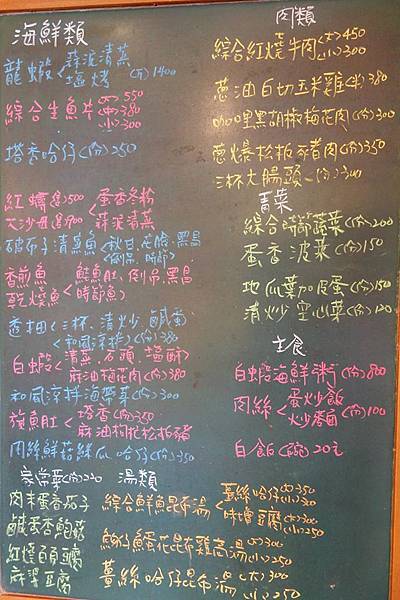 海鮮類
龍蝦<蒜泥清蒸
塩烤 (斤)1400
綜合生魚片 (大)550
(中)380
(小)300
塔香哈仔(份)250
紅蟳(隻)500<蛋香冬粉
(隻)900 蒜泥清蒸
破布子清蒸魚
香煎魚
乾燒魚
透抽<三杯、清炒、鹹蛋
和風涼拌(份)380
白蝦<清蒸、石頭、塩酥
麻油梅花肉(份)380
和風涼拌海帶芽(份)300
旗魚肚<塔香(份)350
麻油枸杞松板豬
肉絲鮮菇絲瓜哈仔(份)350
家常菜(份)220
肉末蛋香茄子
鹹蛋香鮑菇
紅燒魚豆腐
麻婆豆腐
湯類
綜合鮮魚昆布湯<薑絲哈仔(大)350
(小)300
味噌豆腐(大)300
(小)250
蛋花昆布雞高湯(大)300
(小)250
薑絲哈仔昆布湯(大)300
(小)250
肉類
綜合紅燒牛肉(大)450
(小)300
蔥油白切玉米雞(半)380
咖哩黑胡椒梅花肉(份)300
蔥爆松板豬肉(份)350
三杯大腸頭(份)300
青菜
綜合時節蔬菜(份)200
蛋香波菜(份)150
地瓜葉加皮蛋(份)150
清炒空心菜(份)120
主食
白蝦海鮮粥(份)800
肉絲<蛋炒飯
炒麵(份)100
白飯(碗)20元